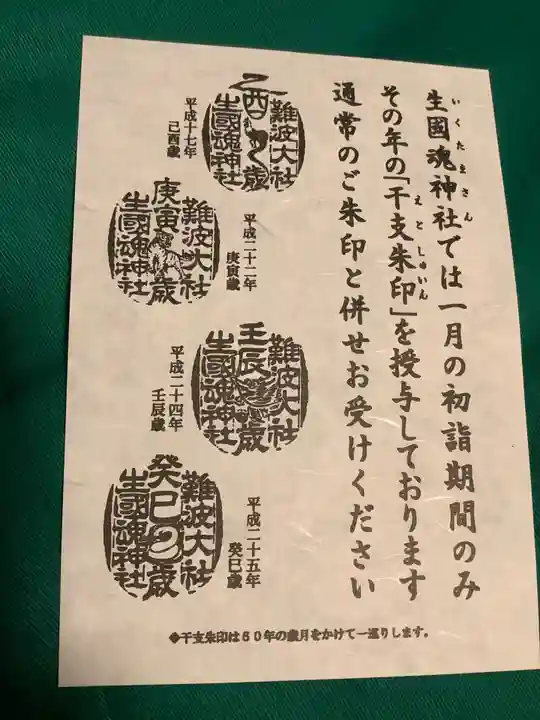 生國魂神社では一月の初詣期間のみ
いくたまさん
その年の「干支朱印」を授与しております
えとしゅいん
通常のご朱印と併せお受けください
難波大社
乙酉歳
生國魂神社
平成十七年
己酉歳
難波大社
庚寅歳
生國魂神社
平成二十二年
庚寅歳
難波大社
壬辰歳
生國魂神社
平成二十四年
壬辰歳
難波大社
癸巳歳
生國魂神社
平成二十五年
癸巳歳
◆干支朱印は６０年の歳月をかけて一巡りします。